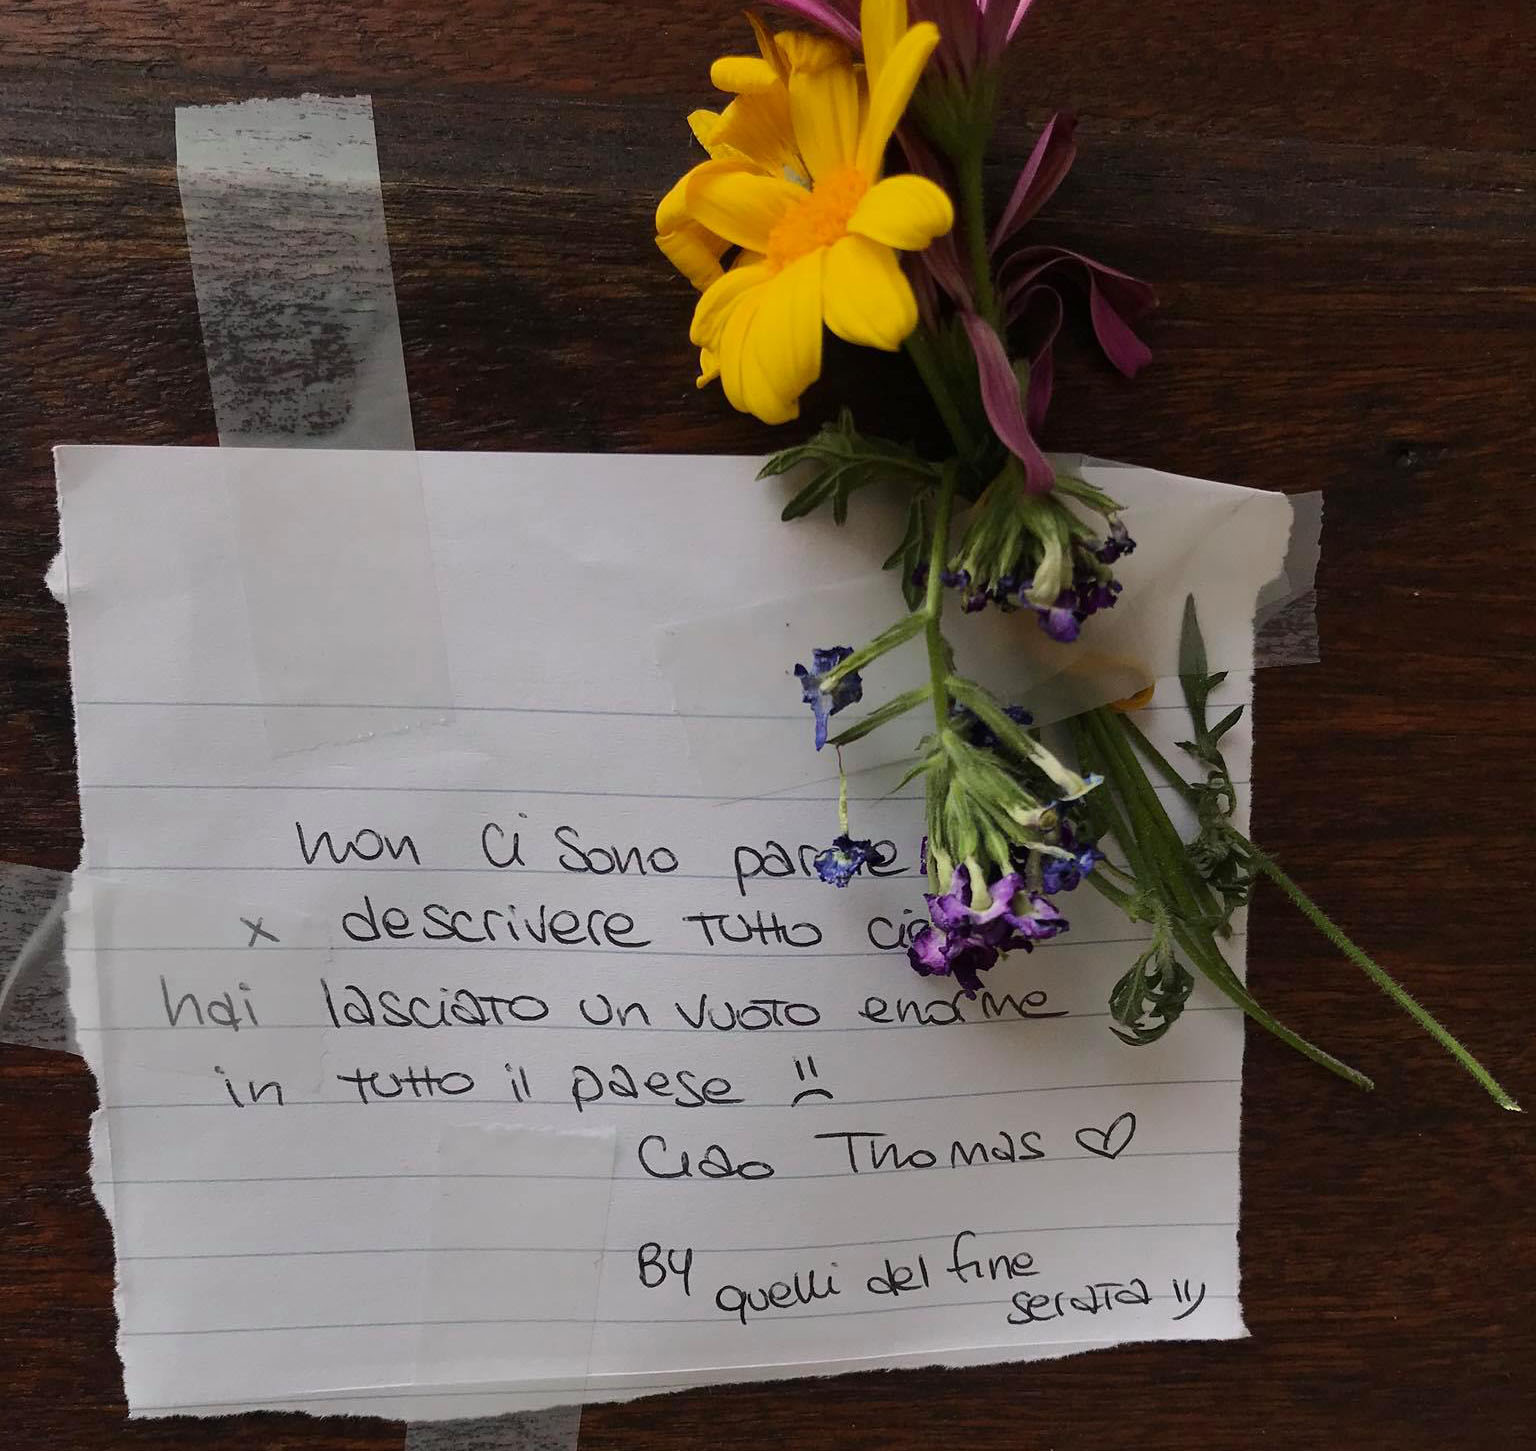 non ci sono parole
x descrivere tutto ciò
hai lasciato un vuoto enorme
in tutto il paese :(
Ciao Thomas ♡
By quelli del fine
serata :)